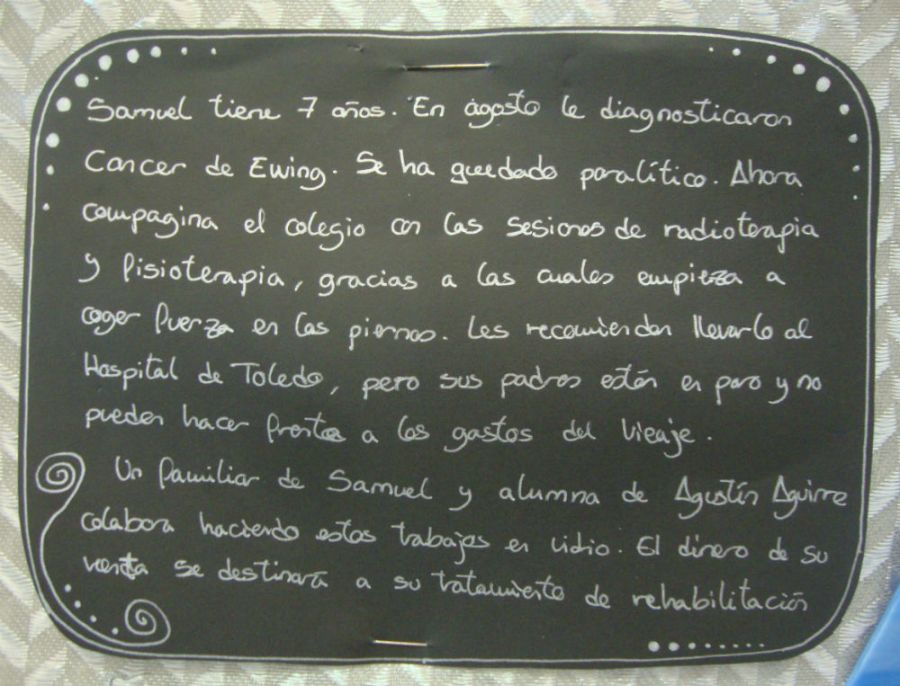 Samuel tiene 7 años. En agosto le diagnosticaron
Cancer de Ewing. Se ha quedado paralítico. Ahora
compagina el colegio con las sesiones de radioterapia
y fisioterapia, gracias a las cuales empieza a
coger fuerza en las piernas. Les recomiendan llevarlo al
Hospital de Toledo, pero sus padres están en paro y no
pueden hacer frente a los gastos del vieaje.
Un familiar de Samuel y alumna de Agustín Aguirre
colabora haciendo estos trabajos en vidrio. El dinero de su
venta se destinará a su tratamiento de rehabilitación